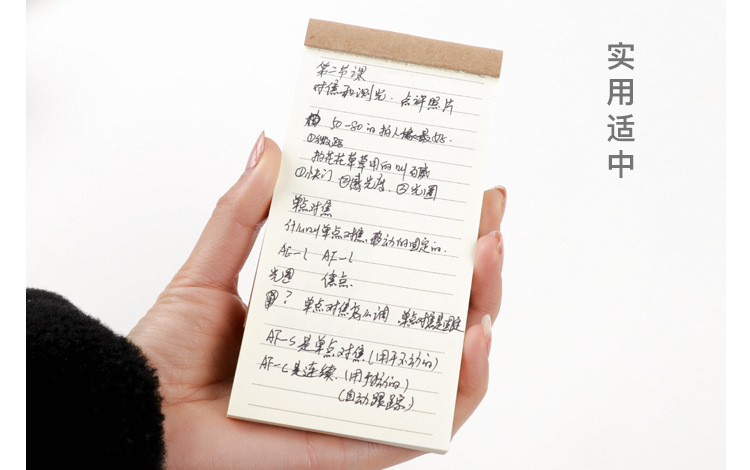 第二节课
对焦和测光.点评照片
50-80的拍人像最好.
①微距
拍花花草草用的叫百微
①快门 ②感光度. ③光圈
单点对焦
什么时单点对焦 移动的固定的.
AE-L AF-L
光圈 焦点.
? 单点对焦怎么调 单点对焦是固定
AF-S是单点对焦(用于不动的)
AF-C是连续.(用于动的)
(自动跟踪)
实用适中